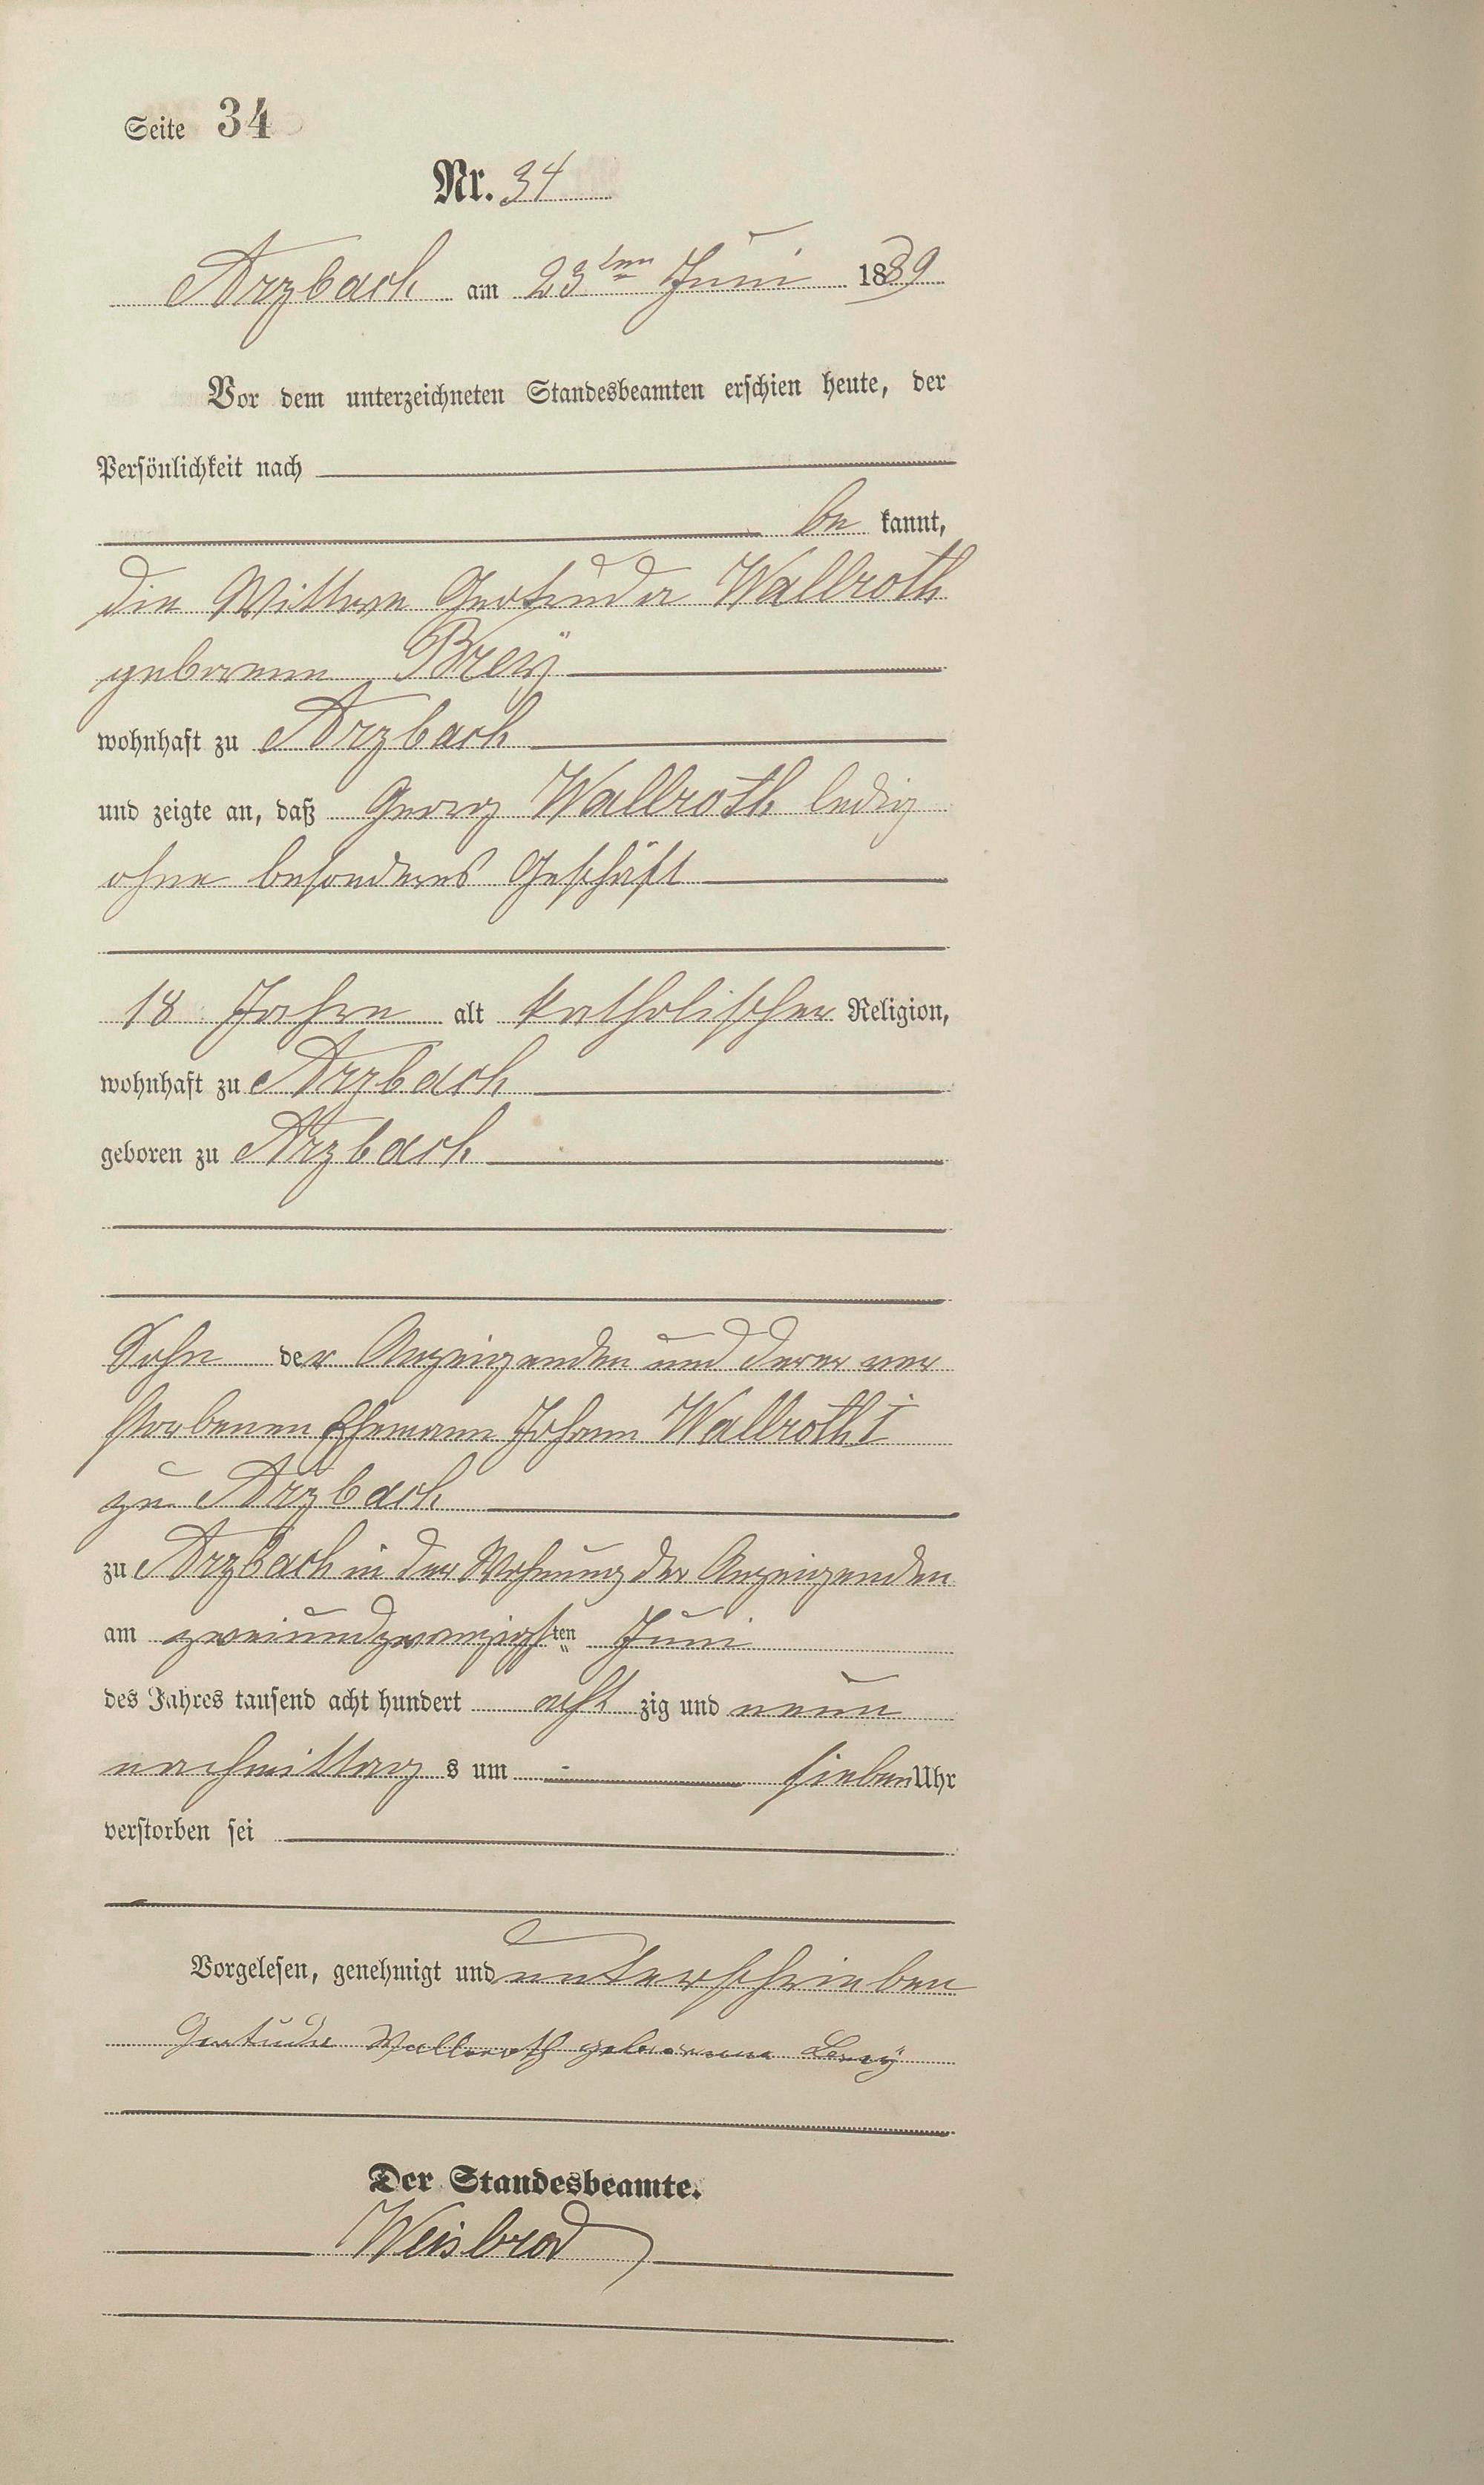 Seite 34
Nr. 34
Arzbach am 23ten Juni 1889
Vor dem unterzeichneten Standesbeamten erschien heute, der
Persönlichkeit nach
be kannt,
die Wittwe Gertruda Wallroth
geborene Breÿ
wohnhaft zu Arzbach
und zeigte an, daß Georg Wallroth ledig
ohne besonderes Geschäft
18 Jahre alt katholischer Religion,
wohnhaft zu Arzbach
geboren zu Arzbach
Sohn der Anzeigenden und deren ver
storbenen Ehemann Johann Wallroth I
zu Arzbach
zu Arzbach in der Wohnung der Anzeigenden
am zweiundzwanzigsten Juni
des Jahres tausend acht hundert acht zig und neun
nachmittag s um sieben Uhr
verstorben sei
Vorgelesen, genehmigt und unterschrieben
Gertrude Wallroth geborenne Breÿ
Der Standesbeamte.
Weisbrod